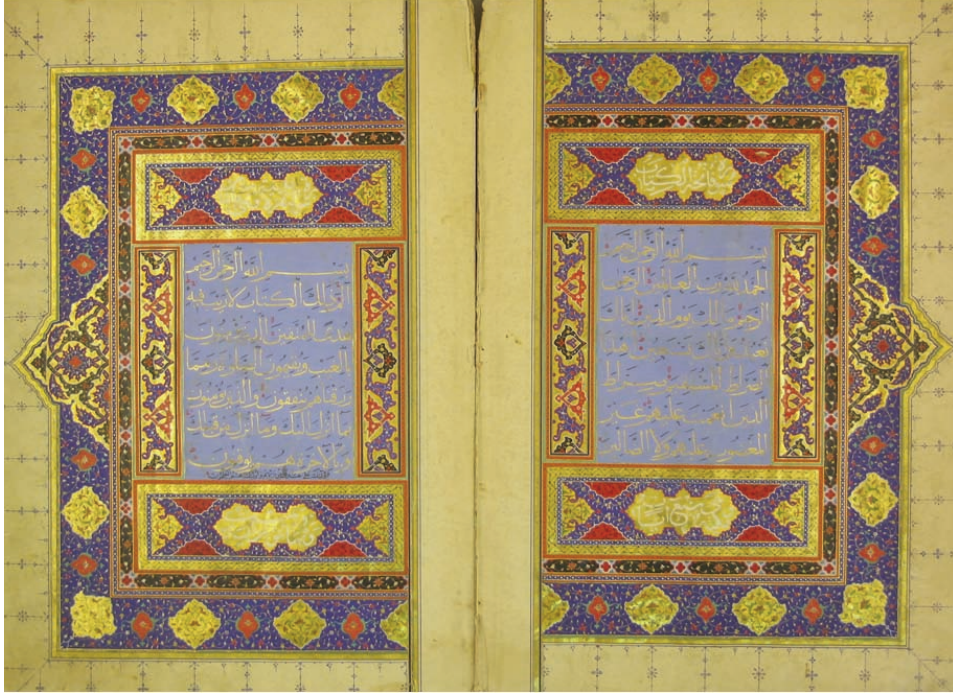 فاتحة الكتاب
بسم الله الرحمن الرحيم
الحمد لله رب العالمين الرحمن
الرحيم ملك يوم الدين اياك
نعبد واياك نستعين اهدنا
الصراط المستقيم صراط
الذين انعمت عليهم غير
المغضوب عليهم ولا الضالين
سبع
بسم الله الرحمن الرحيم
الم ذلك الكتاب لا ريب فيه
هدى للمتقين الذين يؤمنون
بالغيب ويقيمون الصلوة ومما
رزقناهم ينفقون والذين يؤمنون
بما انزل اليك وما انزل من قبلك
وبالاخرة هم يوقنون